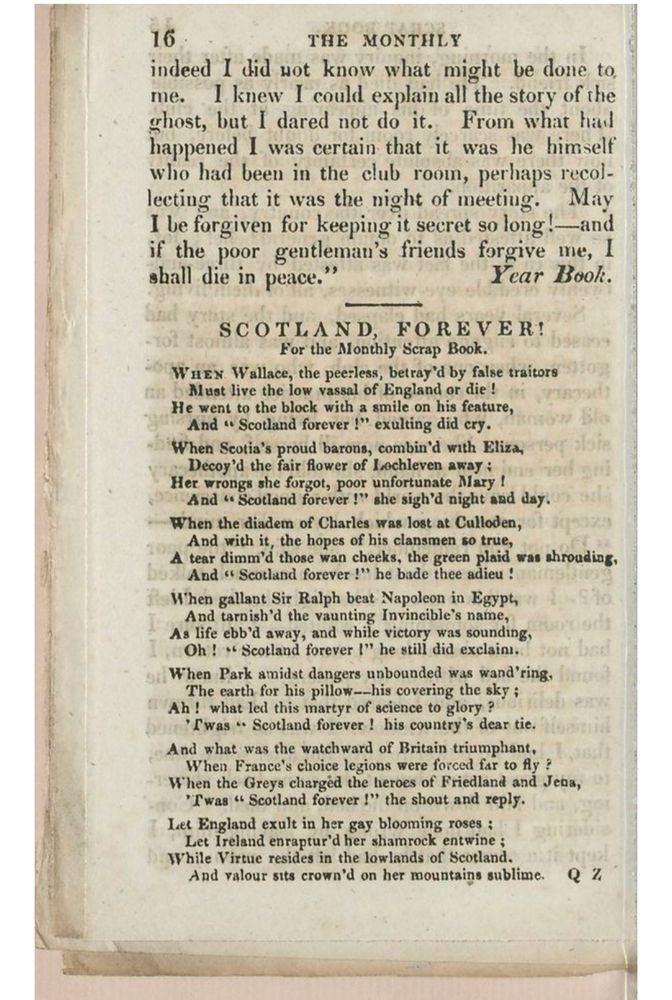 16 THE MONTHLY
indeed I did not know what might be done to
me. I knew I could explain all the story of the
ghost, but I dared not do it. From what had
happened I was certain that it was he himself
who had been in the club room, perhaps recol-
lecting that it was the night of meeting. May
I be forgiven for keeping it secret so long!—and
if the poor gentleman's friends forgive me, I
shall die in peace." Year Book.
SCOTLAND, FOREVER!
For the Monthly Scrap Book.
WHEN Wallace, the peerless, betray'd by false traitors
Must live the low vassal of England or die!
He went to the block with a smile on his feature,
And "Scotland forever!" exulting did cry.
When Scotia's proud barons, combin'd with Eliza,
Decoy'd the fair flower of Lochleven away;
Her wrongs she forgot, poor unfortunate Mary!
And "Scotland forever!" she sigh'd night and day.
When the diadem of Charles was lost at Culloden,
And with it, the hopes of his clansmen so true,
A tear dimm'd those wan cheeks, the green plaid was shrouding,
And "Scotland forever!" he bade thee adieu!
When gallant Sir Ralph beat Napoleon in Egypt,
And tarnish'd the vaunting Invincible's name,
As life ebb'd away, and while victory was sounding,
Oh! "Scotland forever!" he still did exclaim.
When Park amidst dangers unbounded was wand'ring,
The earth for his pillow--his covering the sky;
Ah! what led this martyr of science to glory?
'Twas "Scotland forever! his country's dear tie.
And what was the watchward of Britain triumphant,
When France's choice legions were forced far to fly?
When the Greys charged the heroes of Friedland and Jena,
'Twas "Scotland forever!" the shout and reply.
Let England exult in her gay blooming roses;
Let Ireland enraptur'd her shamrock entwine;
While Virtue resides in the lowlands of Scotland.
And valour sits crown'd on her mountains sublime. Q Z